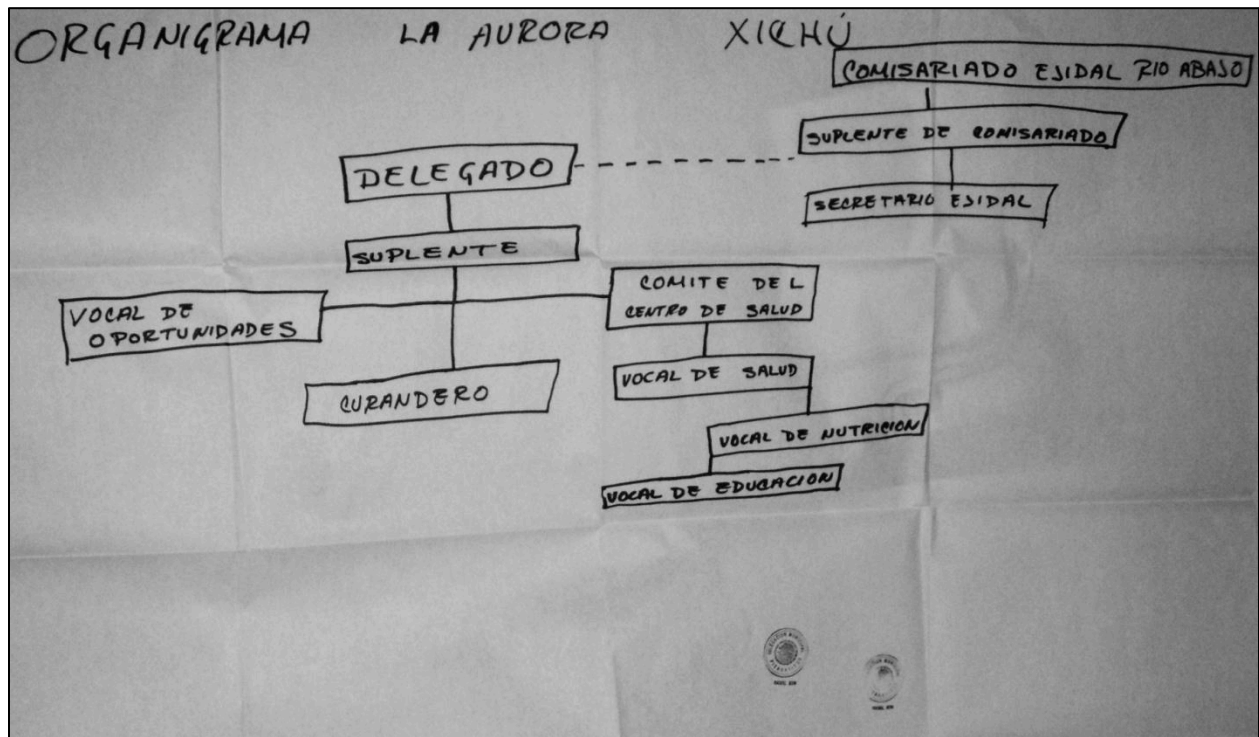 ORGANIGRAMA LA AURORA XICHÚ
COMISARIADO EJIDAL RIO ABAJO
SUPLENTE DE COMISARIADO
SECRETARIO EJIDAL
DELEGADO
SUPLENTE
VOCAL DE
OPORTUNIDADES
CURANDERO
COMITE DEL
CENTRO DE SALUD
VOCAL DE SALUD
VOCAL DE NUTRICION
VOCAL DE EDUCACION